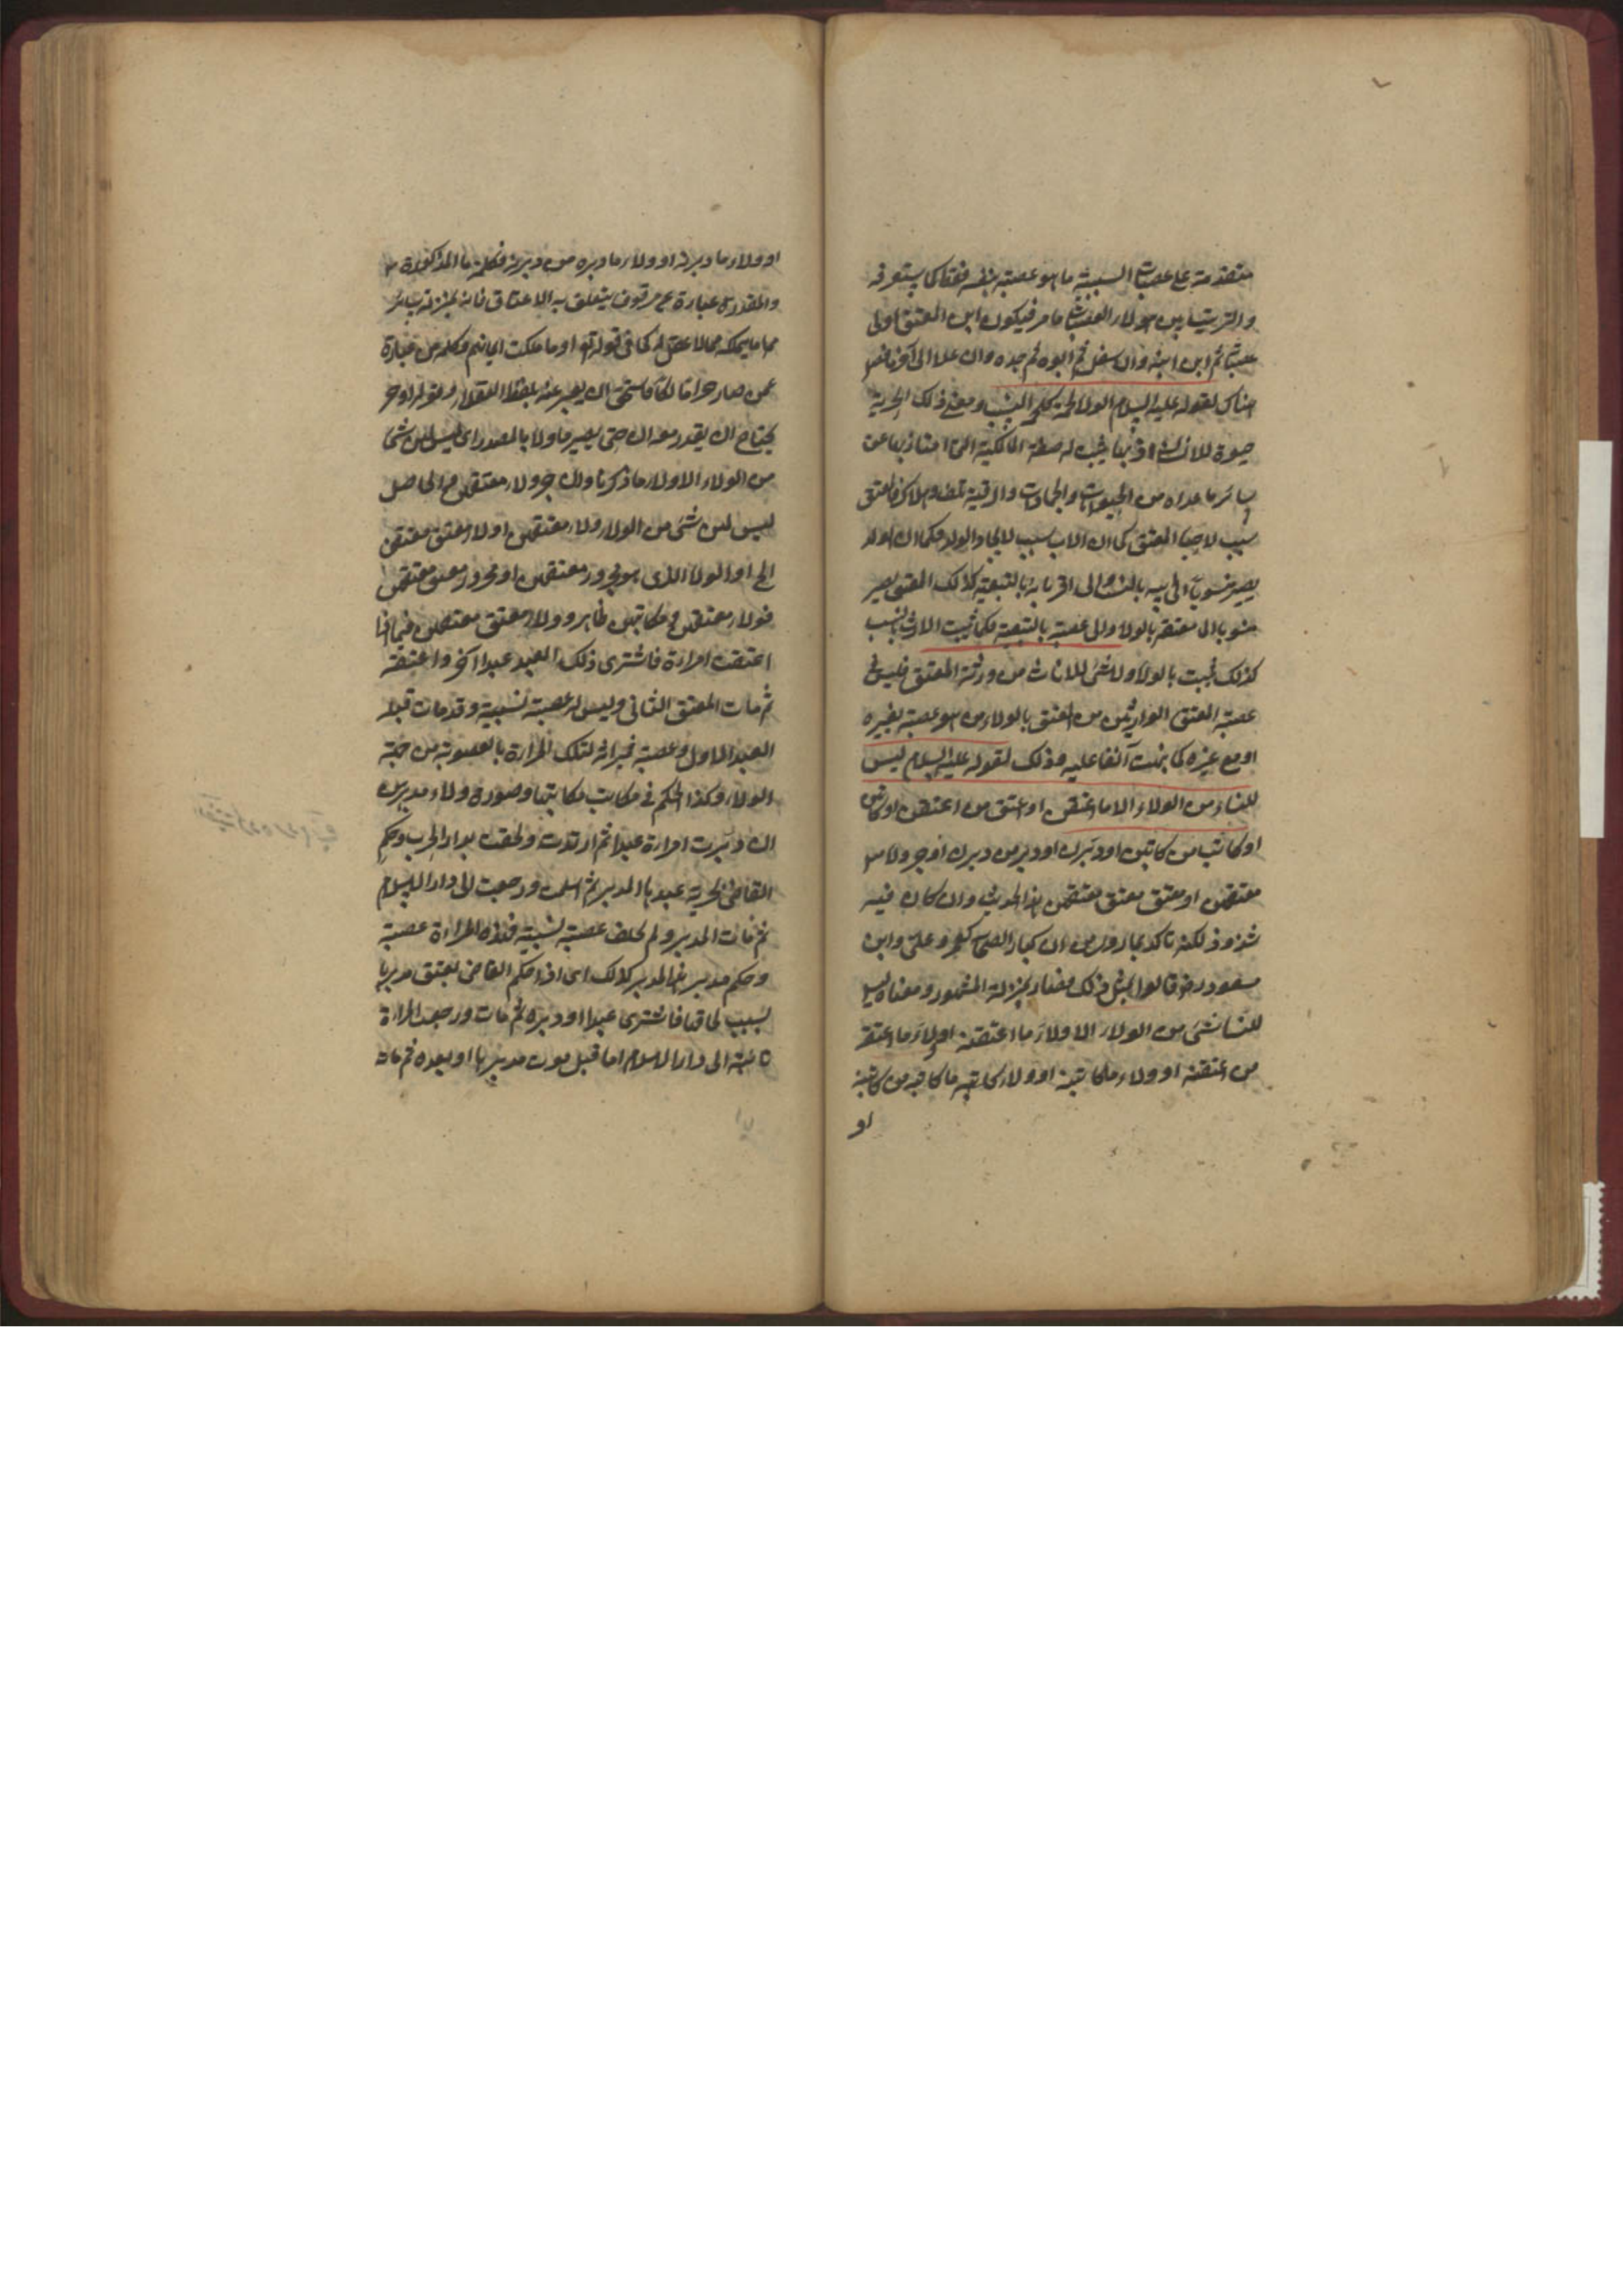 متقدمة على عصبات السببية ما هو عصبة بنفسه فقط كما ستعرفه
والترتيب بين هؤلاء العصبات ما مر فيكون ابن المعتق اولى
عصباته ثم ابن ابنه وان سفل ثم ابوه ثم جده وان علا الى آخر ما فصل
هناك لقوله عليه السلام الولاء لحمة كلحمة النسب ومعنى ذلك ان الحرية
حيوة للانسان اذ بها يثبت له صفة المالكية التي امتاز بها عن
سائر ما عداه من الحيوانات والجمادات والرقية تلف وهلاك فالمعتق
سبب لاحياء المعتق كما ان الاب سبب لايجاد الولد فكما ان الولد
يصير منسوبا الى ابيه بالنسب والى اقربائه بالتبعية كذلك المعتق يصير
منسوبا الى معتقه بالولاء والى عصبته بالتبعية فكما يثبت الارث بالنسب
كذلك يثبت بالولاء ولا شئ للاناث من ورثة المعتق فليس في
عصبة المعتق الوارثين من المعتق بالولاء من هو عصبة بغيره
او مع غيره كما نبهت آنفا عليه وذلك لقوله عليه السلام ليس
للنساء من الولاء الا ما اعتقن او اعتق من اعتقن او كاتبن
او كاتب من كاتبن او دبرن او دبر من دبرن او جر ولاء
معتقهن او معتق معتقهن هذا الحديث وان كان فيه
شذوذ لكنه تاكد بما روى من ان كبار الصحابة كعمر وعلي وابن
مسعود رض قالوا بمثل ذلك فصار بمنزلة المشهور ومعناه ليس
للنساء شئ من الولاء الا ولاء ما اعتقنه او ولاء ما اعتقه
من اعتقنه او ولاء ما كاتبنه او ولاء ما كاتبه من كاتبنه
او
او ولاء ما دبرنه او ولاء ما دبره من دبرنه فكلمة ما المذكورة
والمقدرة عبارة عن مرقوق يتعلق به الاعتاق فانه بمنزلة سائر
ما يملكه مما لا عقل له كما في قوله تع او ما ملكت ايمانهم وكلمة من عبارة
عمن صار حرا مالكا فاستحق ان يعبر عنه بلفظ العقلاء وقوله او جر
يحتاج ان يقدر معه ان حتى يصير ماولا بالمصدر اى ليس لهن شئ
من الولاء الا ولاء ما ذكرنا وان جر ولاء معتقهن والحاصل
ليس لهن شئ من الولاء ولاء معتقهن او لاء معتق معتقهن
الخ او الولاء الذى هو مجرور معتقهن او مجرور معتق معتقهن
فولاء معتقهن ومكاتبهن ظاهر وولاء معتق معتقهن فيما اذا
اعتقت امراة فاشترى ذلك العبد عبدا آخر واعتقه
ثم مات المعتق الثاني وليس له عصبة نسبية وقد مات قبله
العبد الاول وعصبته فميراثه لتلك المراة بالعصوبة من جهة
الولاء وكذا الحكم في مكاتب مكاتبها وصورة ولاء مدبرهن
ان دبرت امراة عبدا ثم ارتدت ولحقت بدار الحرب وحكم
القاضى بحرية عبدها المدبر ثم اسلمت ورجعت الى دار الاسلام
ثم مات المدبر ولم يخلف عصبة نسبية فهذه المراة عصبته
وحكم مدبر هذا المدبر كذلك اى اذا حكم القاضى بعتق مدبرها
بسبب لحاقها فاشترى عبدا ودبره ثم مات ورجعت المراة
تائبة الى دار الاسلام اما قبل موت مدبرها او بعده ثم مات